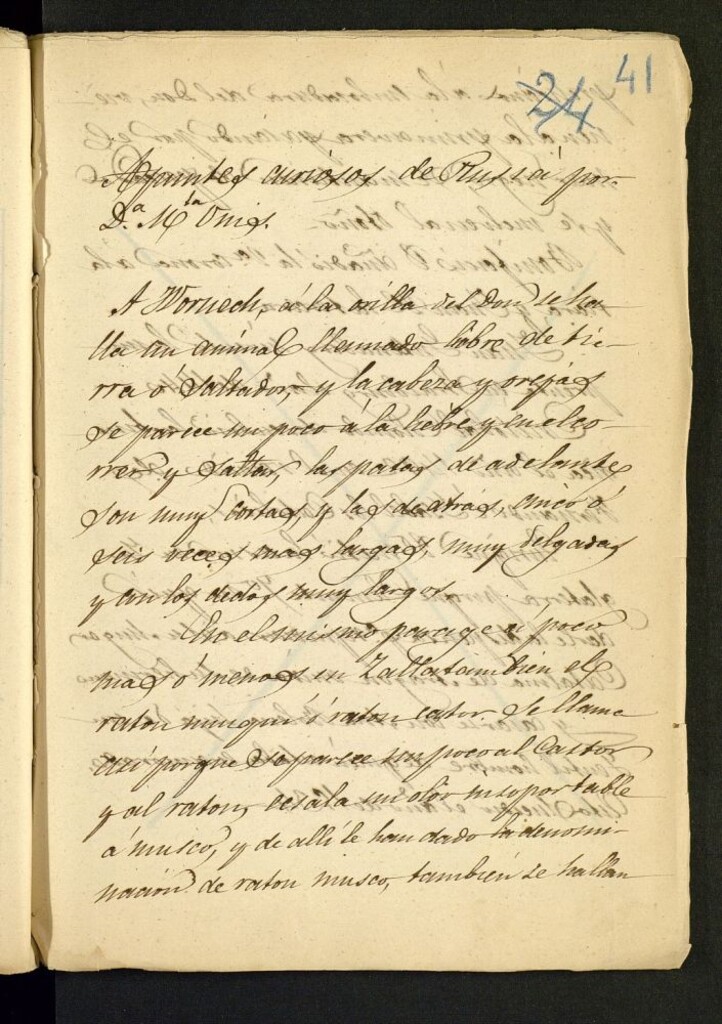 41
24
Apuntes curiosos de Rusia por
D.a M.la Onis.
A Wornech, á la orilla del Don se ha-
lla un animal llamado liebre de tie-
rra ó saltador, y la cabeza y orejas
se parece un poco á la liebre, y en el co-
rrer y saltar, las patas de adelante
son muy cortas, y las de atrás, cinco ó
seis veces mas largas, muy delgadas
y con los dedos muy largos.
En el mismo parage poco
mas ó menos se halla tambien el
raton ó raton castor. Se llama
así porque se parece un poco al Castor
y al raton, ecsala un olor insoportable
á musco, y de allí le han dado la denomi-
nación de raton musco, también se hallan